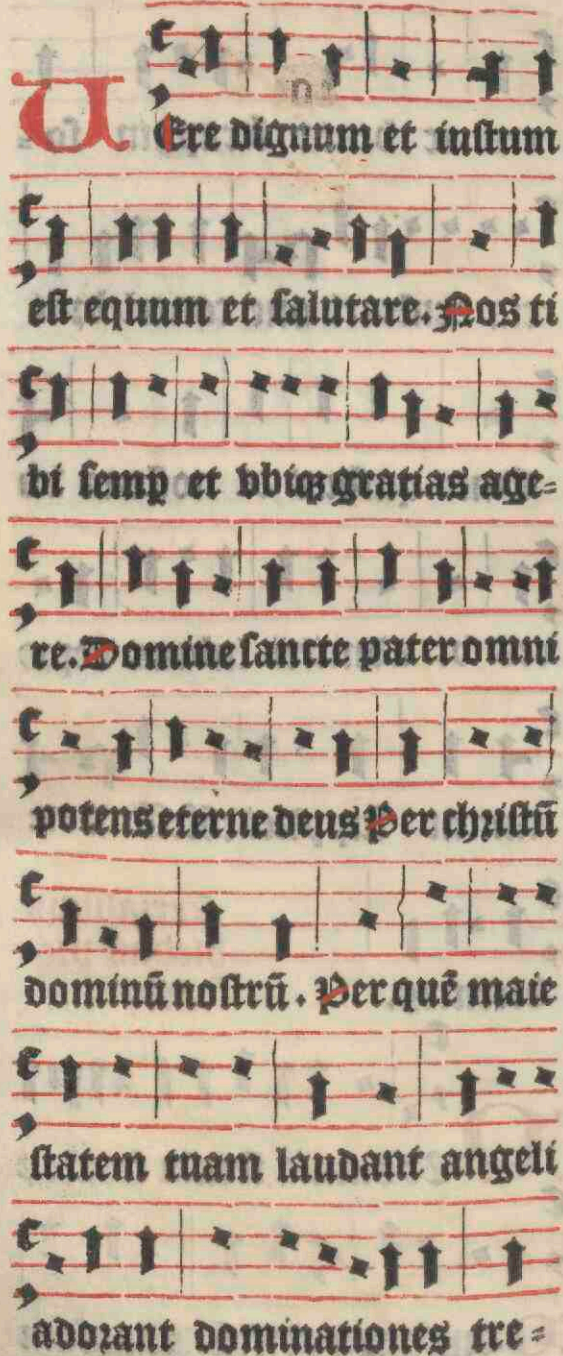 UEre dignum et iustum
est equum et salutare. Nos ti
bi semꝑ et vbiqꝫ gratias age-
re. Domine sancte pater omni
potens eterne deus Per christū
dominū nostrū. Per quē maie
statem tuam laudant angeli
adorant dominationes tre-